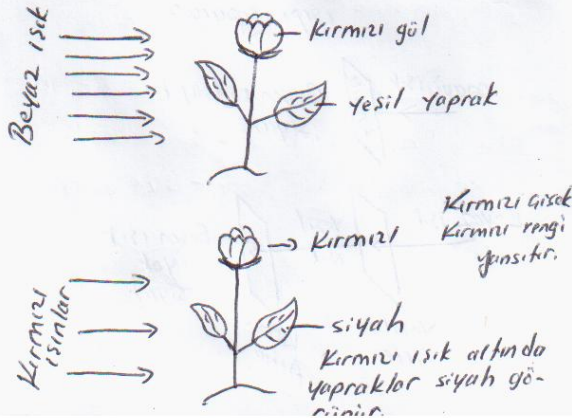 Beyaz ışık
Kırmızı gül
yeşil yaprak
Kırmızı ışınlar
Kırmızı
Kırmızı çiçek
Kırmızı rengi
yansıtır.
siyah
Kırmızı ışık altında
yapraklar siyah gö-
rünür.